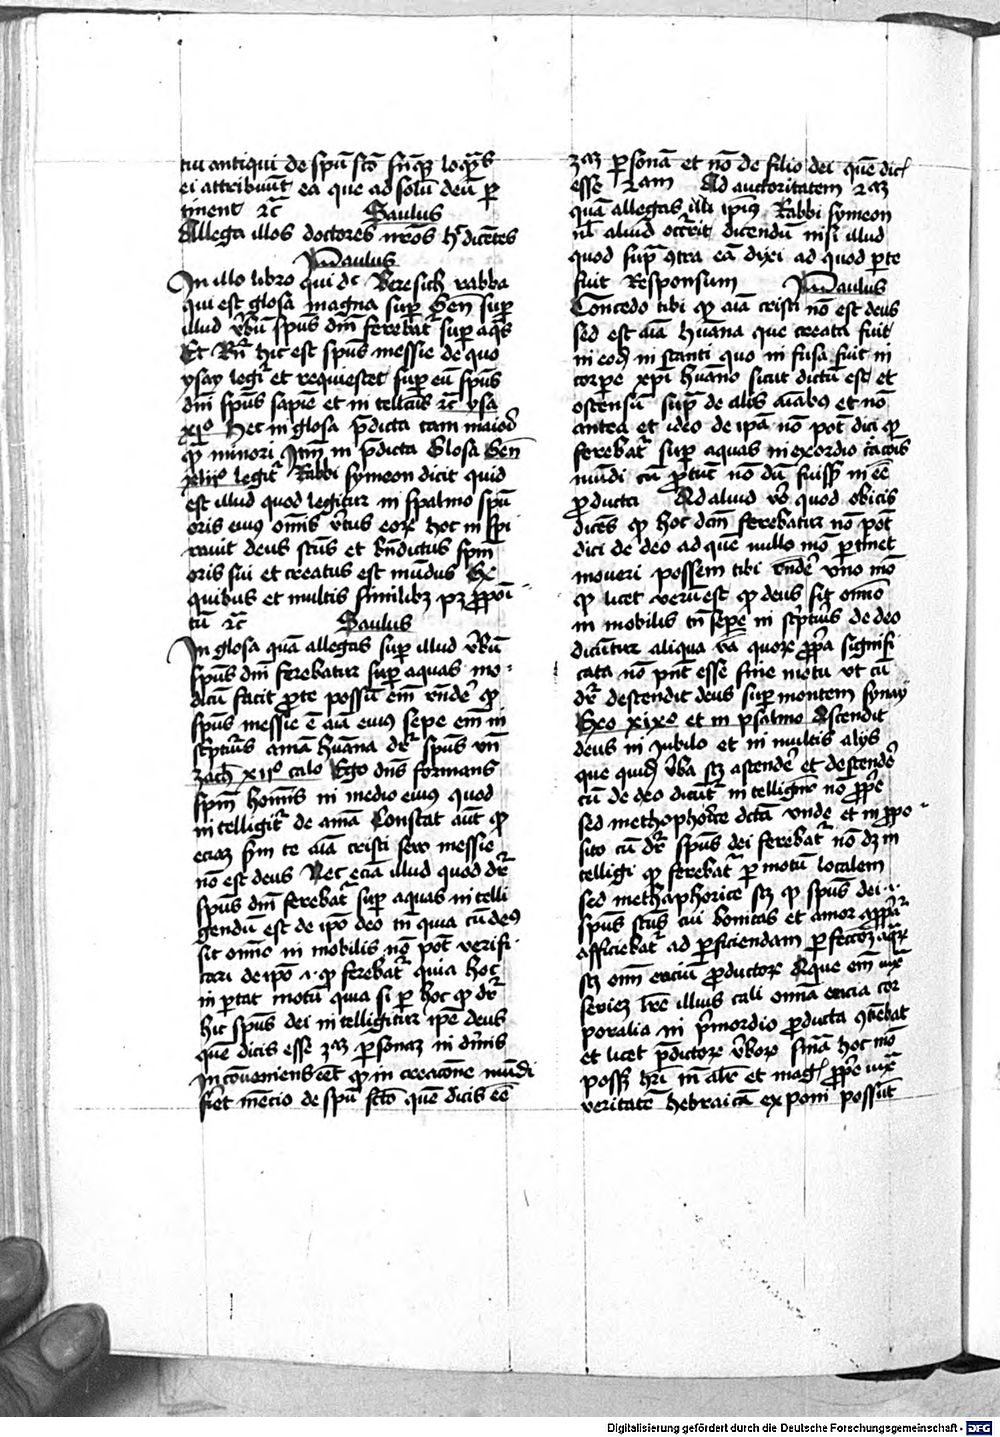 tui antiqui de spū scō sūqꝫ loqn̄s
ei attribuūt ea que ad solū deū ꝑ
tinent ⁊c̄ Saulus
Allega illos doctores nr̄os h' dicētes
Paulus
In illo libro qui dr̄ Beresich rabba
qui est glosa magna suꝑ Gen̄ suꝑ
illud v̄bū spūs dm̄ ferebat᷑ suꝑ aq̄s
Et Rn̄ hic est spūs messie de quo
ysay legit᷑ et requiescet suꝑ eū spūs
dm̄ spūs sapīe et intellcūs ⁊c̄ ysa
xjº hec in glosa p̄dicta tam maiorꝭ
qꝫ minori Itm̄ in p̄dicta Glosa Gen̄
legit᷑ Rabbi symeon dicit quid
est illud quod legitur in spalmo spū
oris eius om̄is v̄tus eoꝝ hoc inspi
rauit deus scūs et bn̄dictus spm̄
oris sui et creatus est mūdus Ex
quibus et multis similibꝫ pꝫ ꝓpoī
tū ⁊c̄ Saulus
In glosa quā allegas suꝑ illud v̄bū
spūs dm̄ ferebatur suꝑ aquas mo-
dicū facit ꝓ te possū em̄ rn̄dē qꝫ
spūs messie ē aīa eius sepe em̄ in
scptur̄is anīa hūana dr̄ spūs vn̄
zach̄ xijº calo Ego dn̄s formans
spm̄ hom̄is in medio eius quod
intelligit᷑ de anīa Constat aūt qꝫ
eciaꝫ sm̄ te aīa cristi seu messie
nō est deus Nec eciā illud quod dr̄
spūs dm̄ ferebat᷑ suꝑ aquas intelli
gendū est de ipō deo tn̄ quia cū deꝰ
sit om̄ino inmobilis nō pōt verifi-
cari de ipō ·i· qꝫ ferebat᷑ quia hoc
inportat motū quia si ꝑ hoc qꝫ dr̄
hic spūs dei intelligitur ipē deus
quē dicis esse 3aꝫ ꝑsonaꝫ in diuīs
Inconueniens eēt qꝫ in creacōne mūdi
fieret mēcio de spū scō quē dicis eē
3aꝫ ꝑsonā et nō de filio dei quē dicꝭ
esse 2am Ad auctoritatem 2aꝫ
quā allegas illi ipīus Rabbi symeon
nl̄ aliud occ̄rit dicendū nisi illud
quod sup̄ ꝯtra eā dixi ad quod ꝑ te
fuit Responsum Paulus
Concedo tibi qꝫ aīa cristi nō est deus
sed est aīa hūana que creata fuit
in eodꝫ instanti quo infusa fuit in
corpore xp̄i hūano sicut dictū est et
ostensū sup̄ de alijs aīabꝰ et nō
antea et ideo de ipā nō pōt dici qꝫ
ferebat᷑ suꝑ aquas in exordio c̄acōis
mūdi cū ꝓtūc nōdū fuissꝫ in eē
ꝓducta Ad aliud v̄o quod obicis
dicēs qꝫ hoc dcm̄ ferebatur nō pōt
dici de deo ad quē nullo mō ꝑtinet
moueri possem tibi rn̄dē vno mō
qꝫ licet verū est qꝫ deus sit om̄ino
inmobilis tn̄ sepe in scptur̄is de deo
dicūtur aliqua v̄a quoꝝ ꝓp̄a signifi
cata nō pn̄t esse sine motu vt cū
dr̄ descendit deus suꝑ montem synay
Exo xixº et in psalmo Ascendit
deus in Jubilo et in multis alijs
que quidꝫ v̄ba scꝫ ascendē et descendē
cū de deo dicūt᷑ intelligūr nō ꝓp̄e
sed methaphorice dicta vnde et in ꝓpo-
sito cū dr̄ spūs dei ferebat᷑ nō dꝫ in
telligi qꝫ ferebat᷑ ꝑ motū localem
sed methaphorice scꝫ qꝫ spūs dei ·i·
spūs scūs cui bonitas et amor
afficiebat᷑ ad ꝑficiendam ꝑfeccōeꝫ
scꝫ om̄i enciū ꝓductoꝝ Aque em̄ iux̄
seriez lr̄e illius cali om̄ia encia cor
poralia in p̄mordio ꝓducta ꝯtēbāt
et licet p̄dictoꝝ v̄boꝝ sn̄ia hoc mō
possꝫ hr̄i in alr̄ et magꝭ ꝓp̄e iux̄
veritatē hebraicā exponi possūt
Digitalisierung gefördert durch die Deutsche Forschungsgemeinschaft - DFG